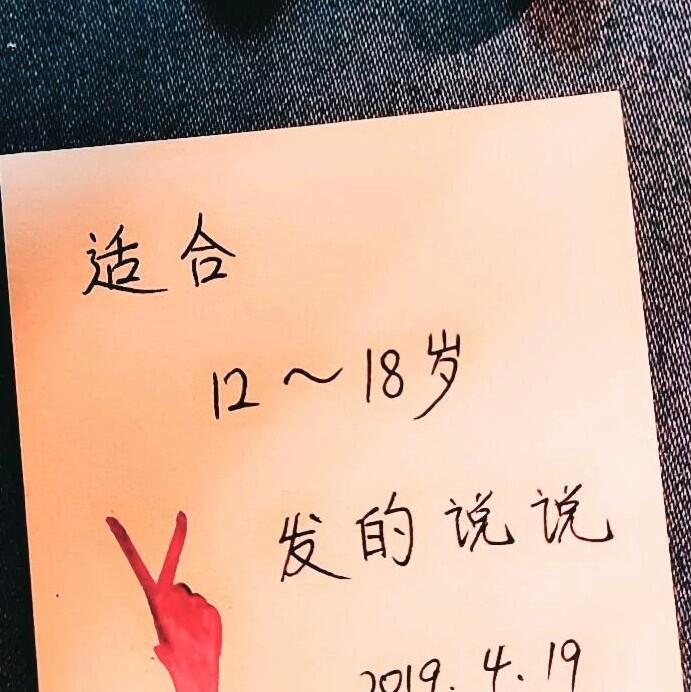 适合
12～18岁
发的说说
2019.4.19